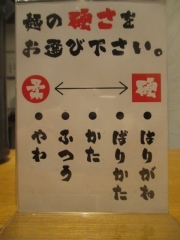 麺の硬さを
お選び下さい。
柔 ←→ 硬
● ● ● ● ●
はりがね
ばりかた
かた
ふつう
やわ